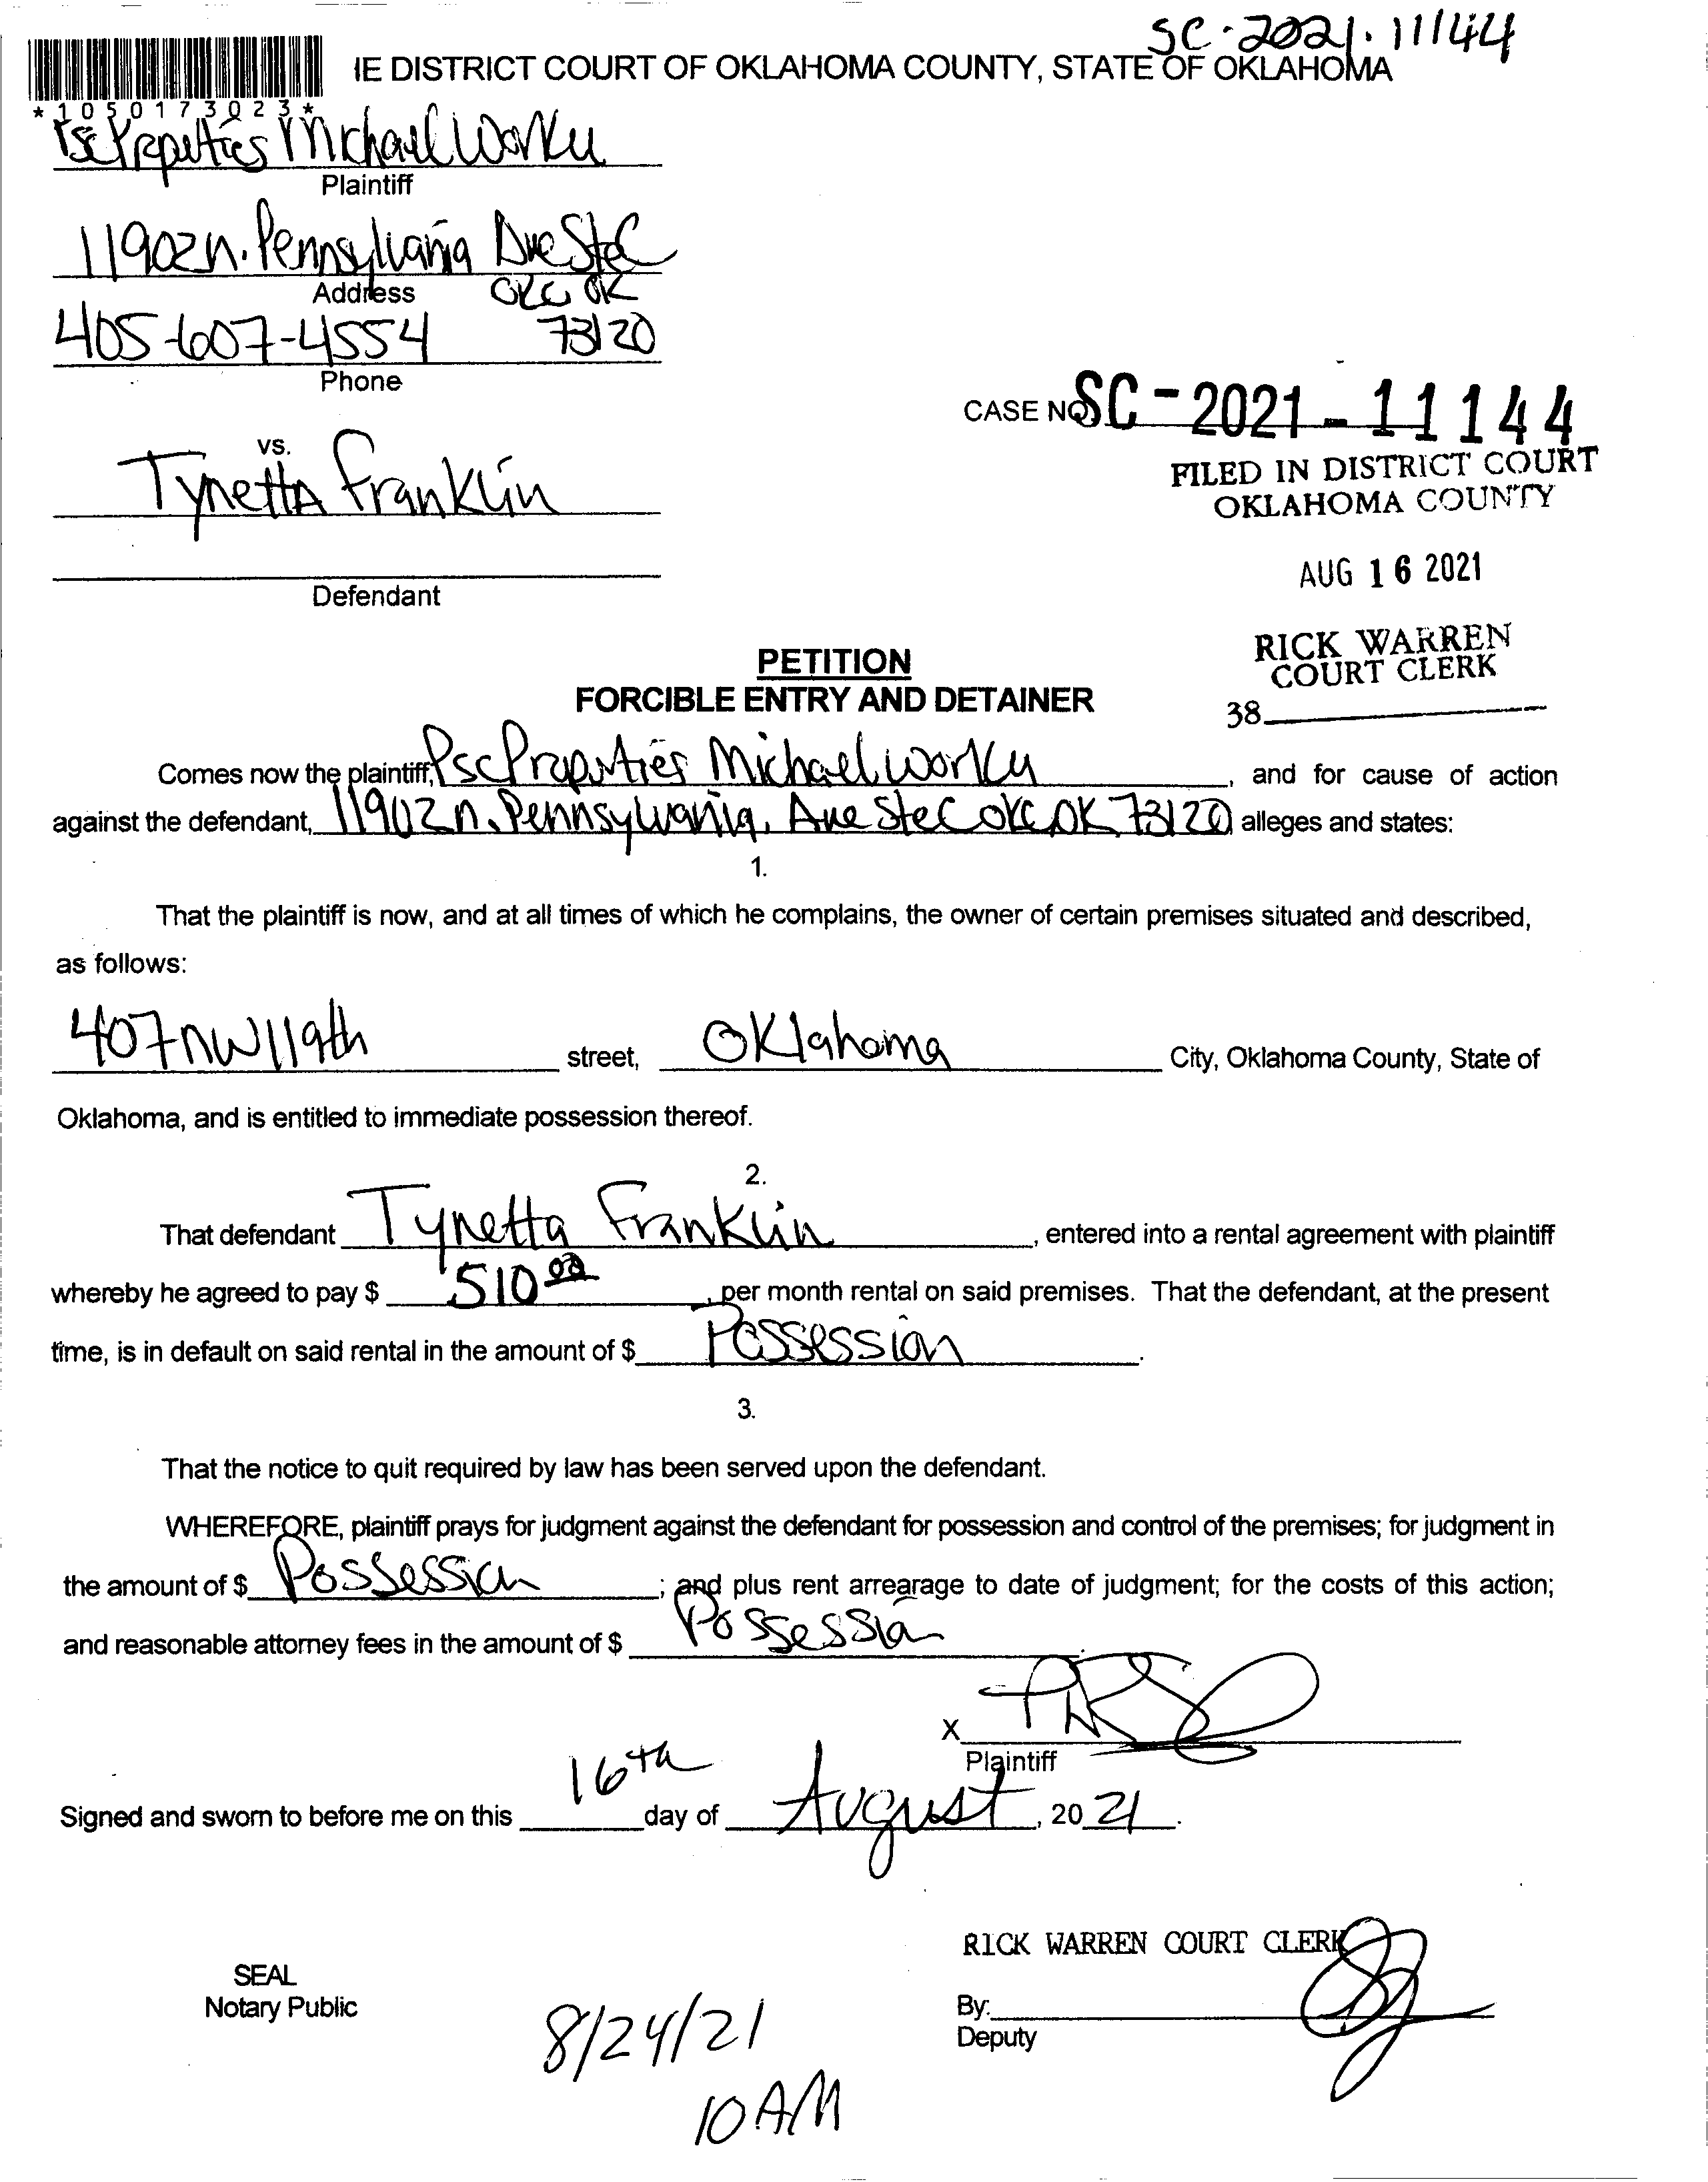 SC-2021-11144
IE DISTRICT COURT OF OKLAHOMA COUNTY, STATE OF OKLAHOMA
*1050173023*
PSC Properties Michael Worku
Plaintiff
11902 N. Pennsylvania Ave Ste C
Address OKC OK
405-607-4554 73120
Phone
CASE NO. SC-2021-11144
FILED IN DISTRICT COURT
OKLAHOMA COUNTY
vs.
Tynetta Franklin
AUG 16 2021
Defendant
RICK WARREN
COURT CLERK
38
PETITION
FORCIBLE ENTRY AND DETAINER
Comes now the plaintiff, PSC Properties Michael Worku, and for cause of action
against the defendant, 11902 n. Pennsylvania, Ave Ste C OKC OK 73120 alleges and states:
1.
That the plaintiff is now, and at all times of which he complains, the owner of certain premises situated and described,
as follows:
407 NW 119th street, Oklahoma City, Oklahoma County, State of
Oklahoma, and is entitled to immediate possession thereof.
2.
That defendant Tynetta Franklin, entered into a rental agreement with plaintiff
whereby he agreed to pay $ 510 00, per month rental on said premises. That the defendant, at the present
time, is in default on said rental in the amount of $ Possession.
3.
That the notice to quit required by law has been served upon the defendant.
WHEREFORE, plaintiff prays for judgment against the defendant for possession and control of the premises; for judgment in
the amount of $ Possession; and plus rent arrearage to date of judgment; for the costs of this action;
and reasonable attorney fees in the amount of $ Possession
X
Plaintiff
Signed and sworn to before me on this 16th day of August, 2021.
RICK WARREN COURT CLERK
SEAL
Notary Public
By:
Deputy
8/24/21
10 AM